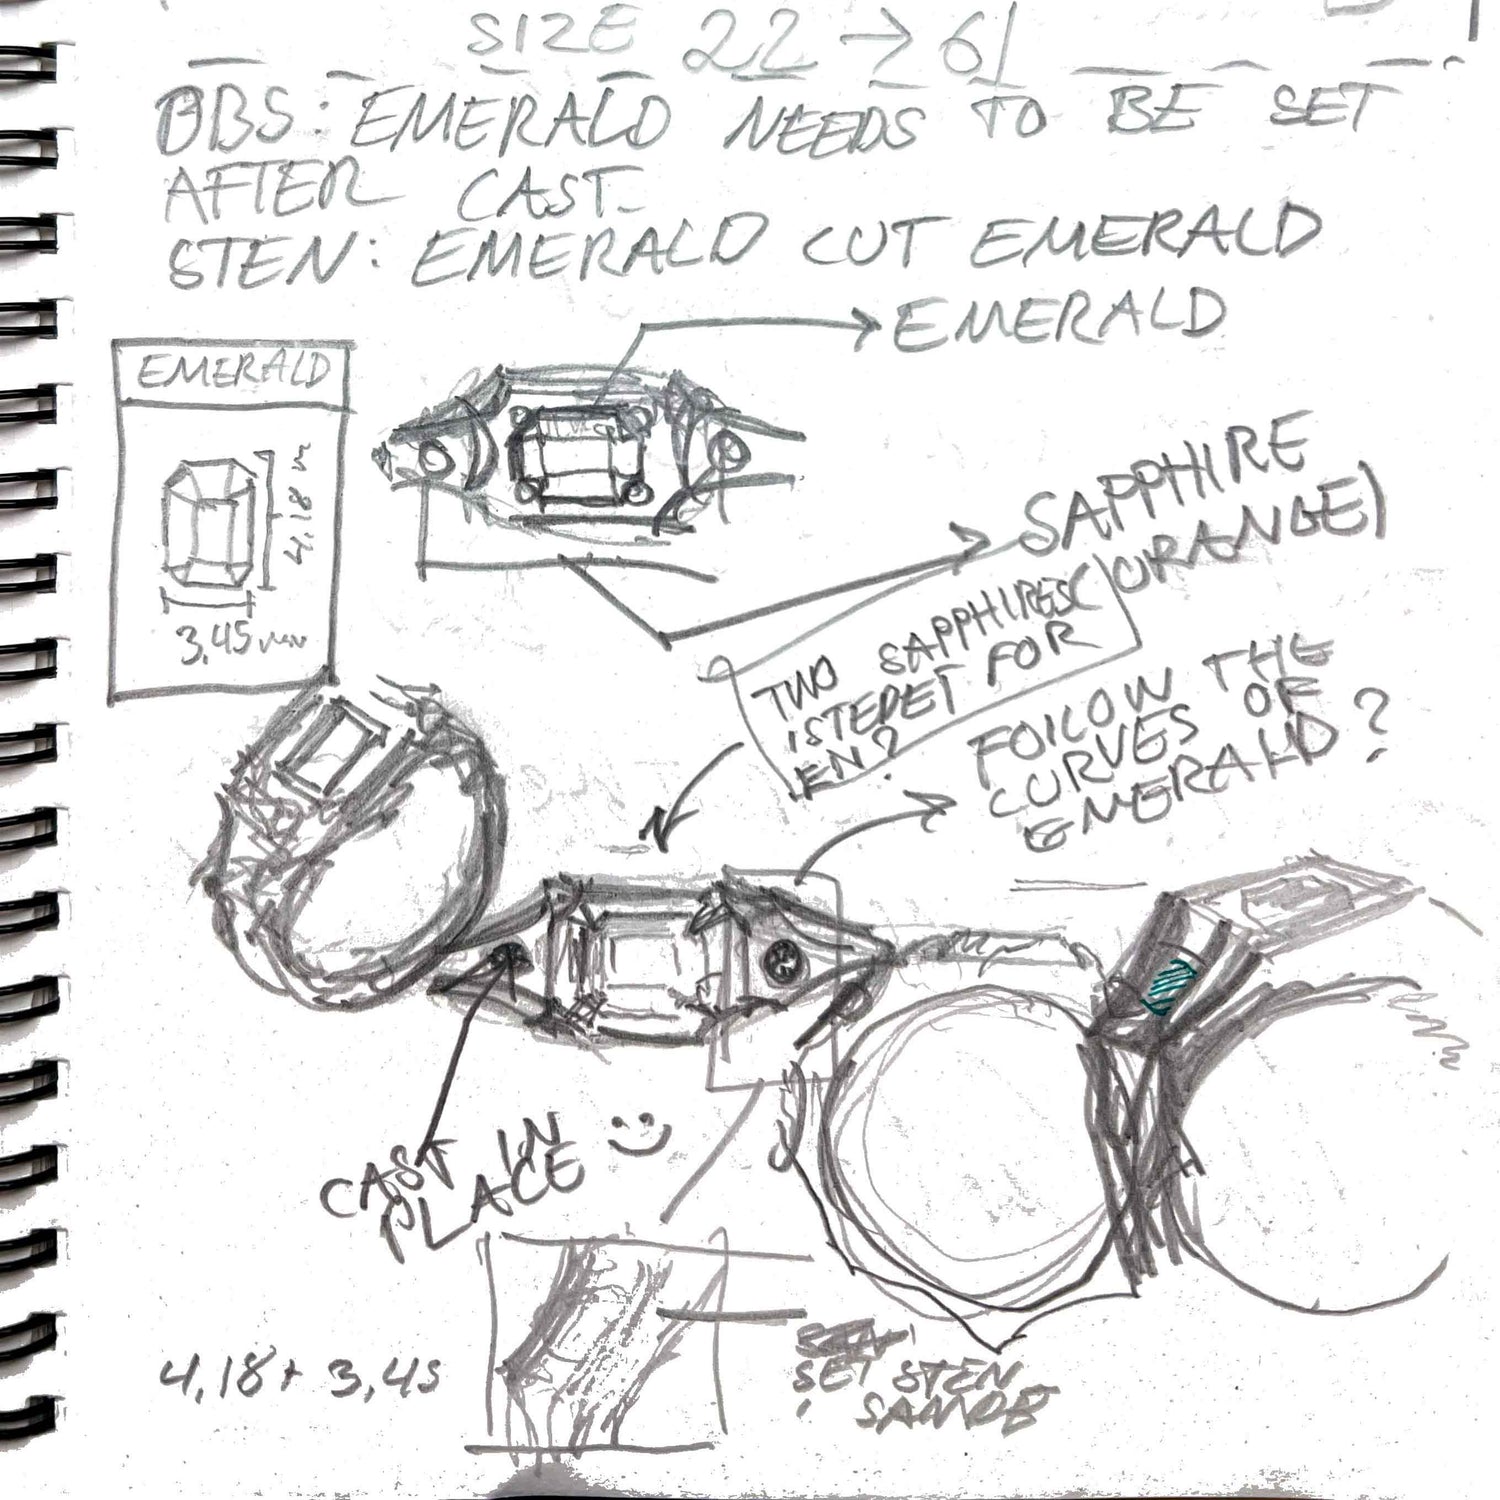 SIZE 22 → 61
OBS: EMERALD NEEDS TO BE SET
AFTER CAST.
STEN: EMERALD CUT EMERALD
EMERALD
EMERALD
4,18 m
3,45 mm
SAPPHIRE
(ORANGE)
TWO SAPPHIRES
ISTEDET FOR
EN?
FOLLOW THE
CURVES OF
EMERALD?
CAST IN
PLACE
4,18 + 3,45
SET STEN